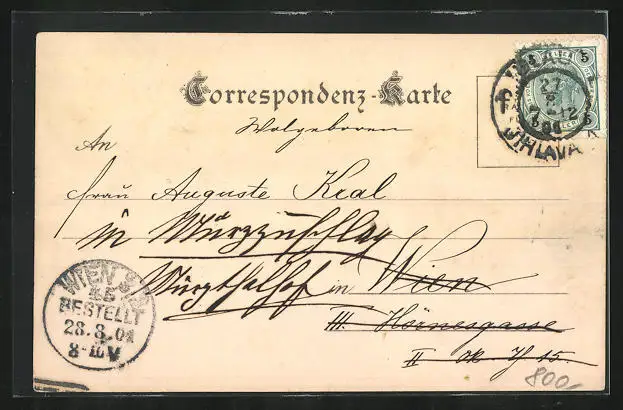 Correspondenz-Karte
Wolgeboren
An
Frau Auguste Kral
in Mürzzuschlag
Mürzthalhof in Wien
III. Hörnesgasse
II 15.
5
5
27
JIHLAVA
WIEN
BESTELLT
28.8.01
8-
V
800